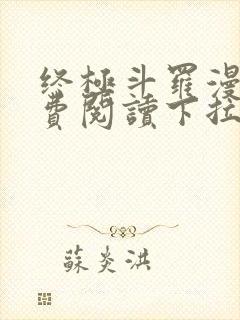 终極斗羅漫
費閱讀下拉
蘇炎洪